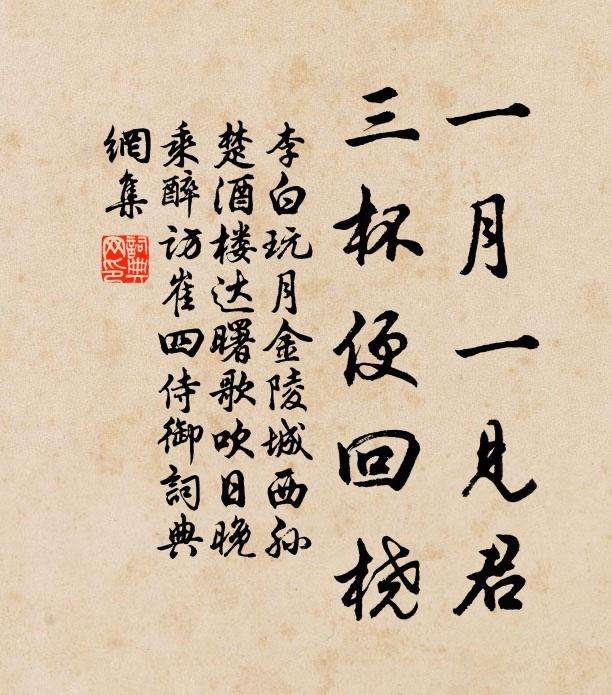 一月一見君
三杯便回桡
李白玩月金陵城西孙
楚酒楼达曙歌吹日晚
乘醉访崔四侍御詞典
網集
詞典
网印